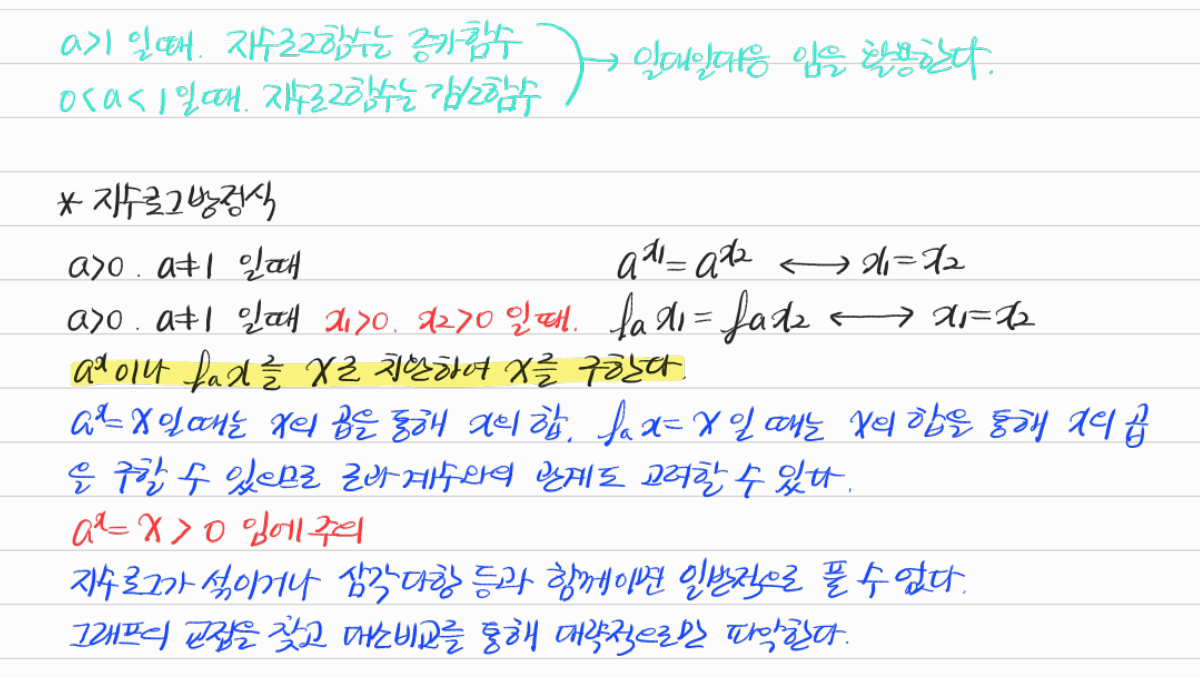 a>1 일때. 지수로그함수는 증가함수
0<a<1일때. 지수로그함수는 감소함수
→ 일대일대응 임을 활용한다.
* 지수로그방정식
a>0. a≠1 일때 a^x₁ = a^x₂ ⟷ x₁=x₂
a>0. a≠1 일때 x₁>0. x₂>0 일때. fₐx₁ = fₐx₂ ⟷ x₁=x₂
a^x이나 fₐx를 X로 치환하여 X를 구한다.
a^x=X일때는 X의 곱을 통해 x의 합. fₐx=X일 때는 X의 합을 통해 x의 곱
을 구할 수 있으므로 근과계수와의 관계도 고려할 수 있다.
a^x=X>0 임에 주의
지수로그가 섞이거나 삼각다항 등과 함께이면 일반적으로 풀 수 없다.
그래프의 교점을 찾고 대소비교를 통해 대략적으로만 파악한다.